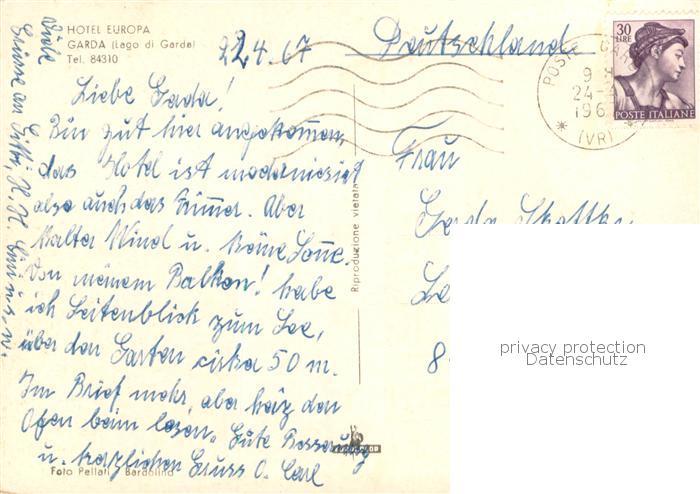 HOTEL EUROPA
GARDA (Lago di Garda)
Tel. 84310
22.4.67
Deutschland
Liebe Gerda!
Bin gut hier angekommen,
das Hotel ist modernisiert
also auch das Zimmer. Aber
kalter Wind u. keine Sonne.
Von meinem Balkon! habe
ich Seitenblick zum See,
über den Garten zirka 50 m.
Im Brief mehr, aber heiz den
Ofen beim lesen. Gute Besserung
u. herzlichen Gruss O. Carl
Viele
Grüsse an
Foto Pellati - Bardolino
Riproduzione vietata
30
LIRE
POSTE ITALIANE
POSTE
9
24-4
196
(VR)
Frau
Gerda
8
privacy protection
Datenschutz